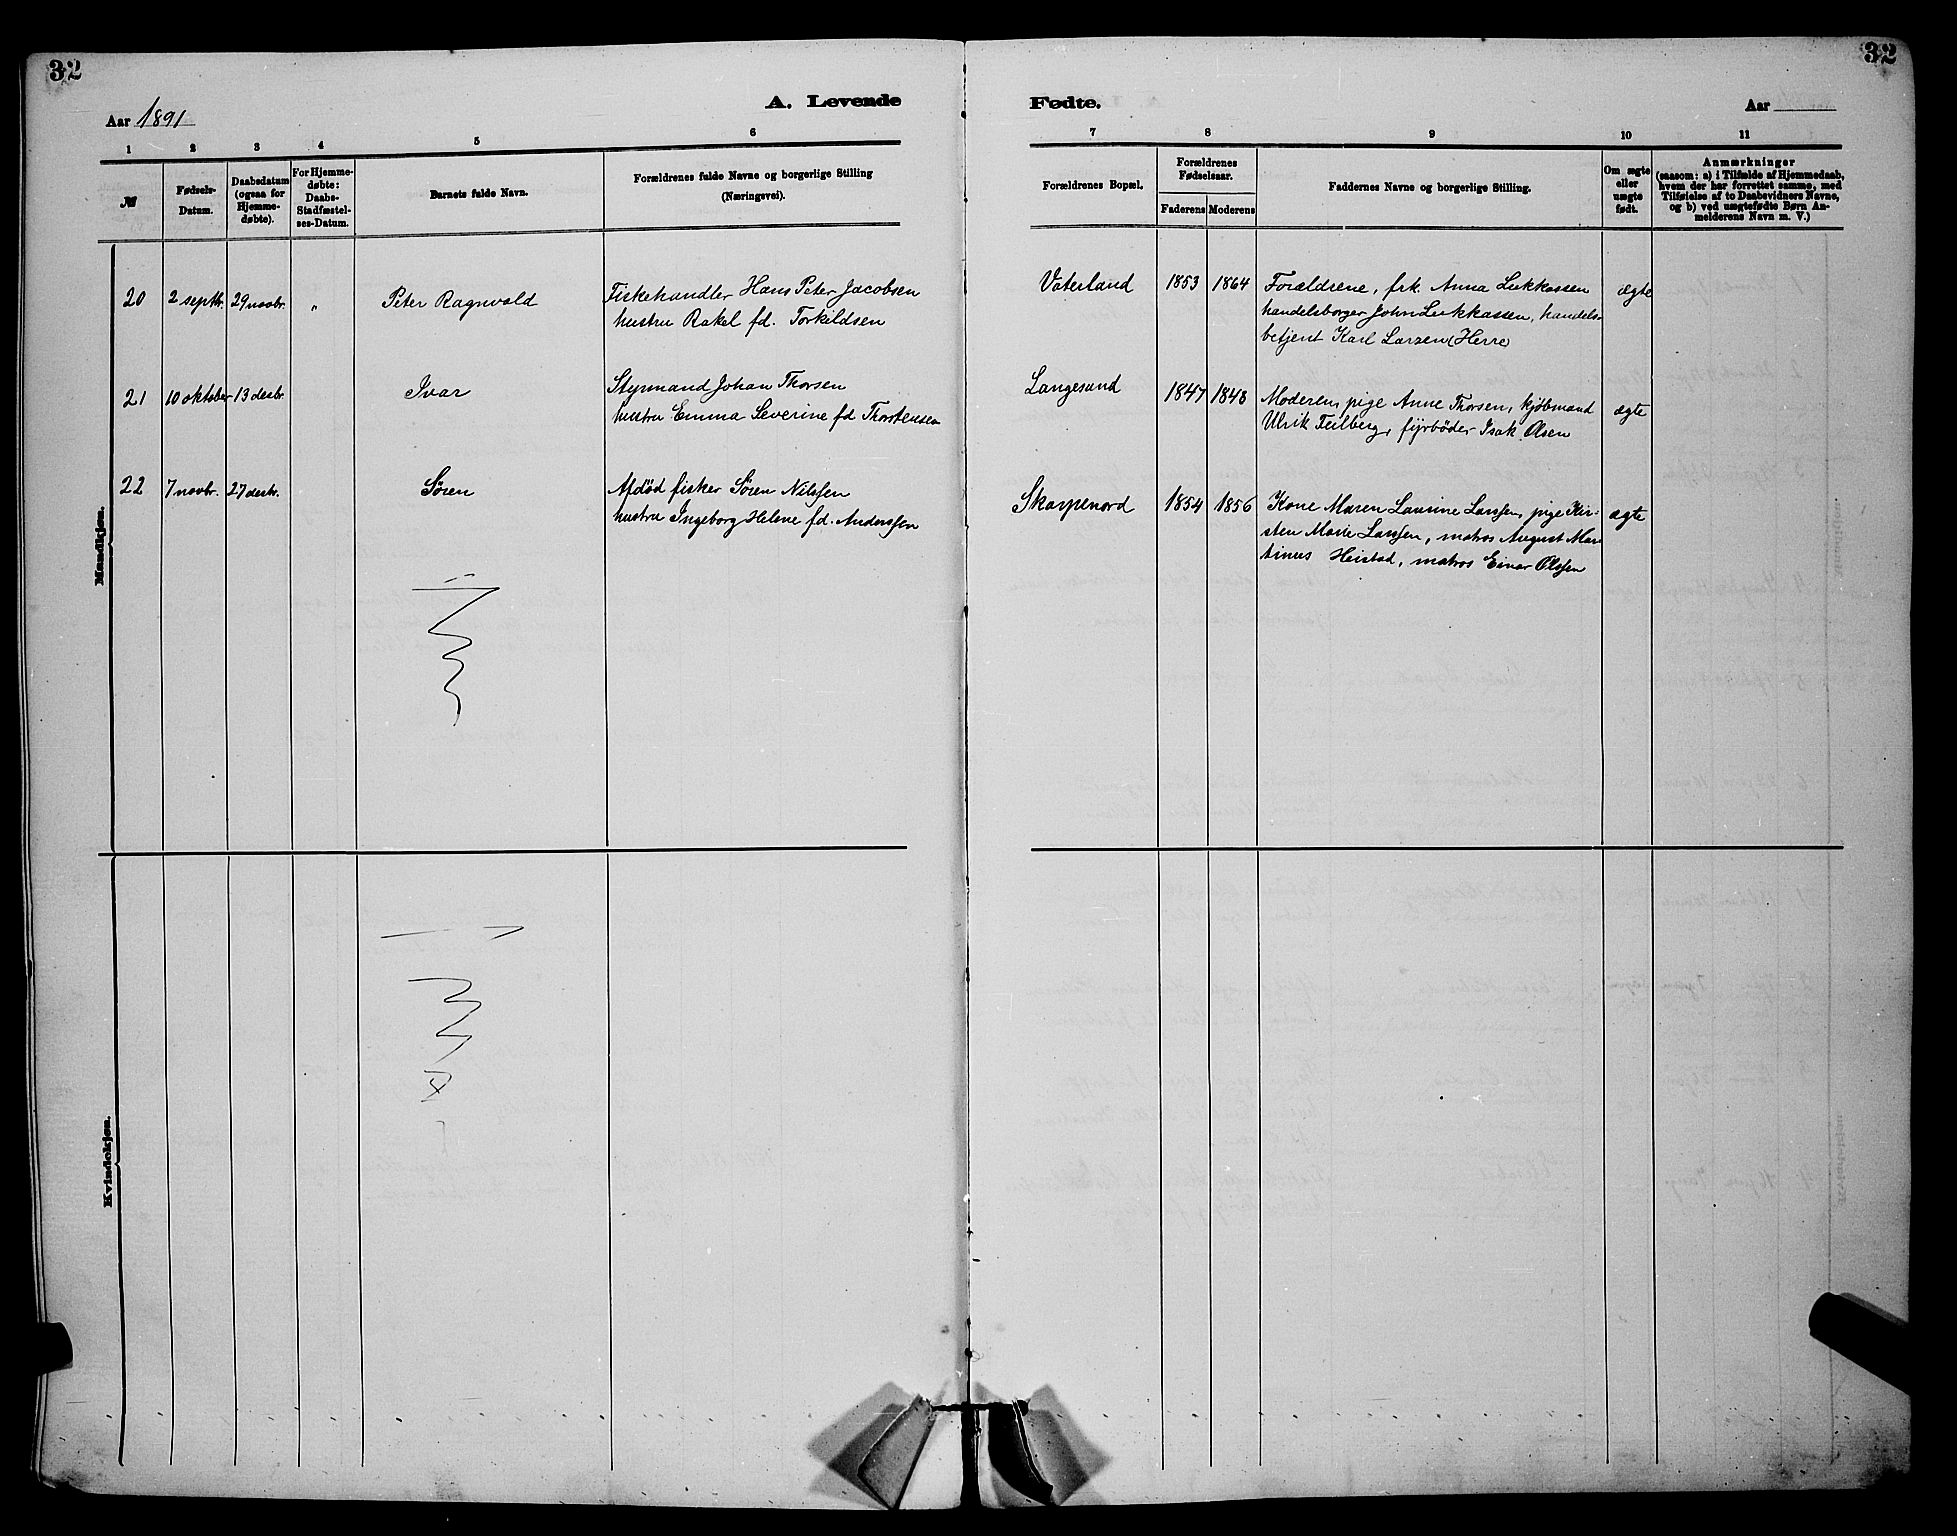 32
32
Aar 1891
A. Levende
Fødte.
Aar
1
2
3
4
5
6
7
8
9
10
11
№
Fødsels-
Datum.
Daabsdatum
(ogsaa for
Hjemme-
døbte).
For Hjemme-
døbte:
Daabs-
Stadfæstel-
ses-Datum.
Barnets fulde Navn.
Forældrenes fulde Navne og borgerlige Stilling
(Næringsvei).
Forældrenes Bopæl.
Forældrenes
Fødselsaar.
Faderens
Moderens
Faddernes Navne og borgerlige Stilling.
Om ægte
eller
uægte
født.
Anmærkninger
(saasom: a) i Tilfælde af Hjemmedaab,
hvem der har forrettet samme, med
Tilføielse af to Daabsvidners Navne,
og b) ved uægtefødte Børn An-
melderens Navn m. V.)
Mandkjøn.
20
2 septbr.
29 novbr.
"
Peter Ragnvald
Fiskehandler Hans Peter Jacobsen
hustru Rakel fd. Torkildsen
Vaterland
1853
1864
Forældrene, frk. Anna Lukkassen
handelsborger John Lukkassen, handels-
betjent Karl Larsen (Herre)
ægte
21
10 oktober
13 desbr.
Ivar
Styrmand Johan Thorsen
hustru Emma Severine fd Thorstensen
Langesund
1847
1848
Moderen, pige Anne Thorsen, kjøbmand
Ulrik Feilberg, fyrbøder Isak Olsen
ægte
22
7 novbr.
27 desbr.
Søren
Afdød fisker Søren Nilssen
hustru Ingeborg Helene fd. Anderssen
Skarpenord
1854
1856
Kone Maren Laurine Larssen, pige Kir-
sten Marie Larssen, matros August Mar-
tinus Heistad, matros Einar Olssen
ægte
Kvindekjøn.